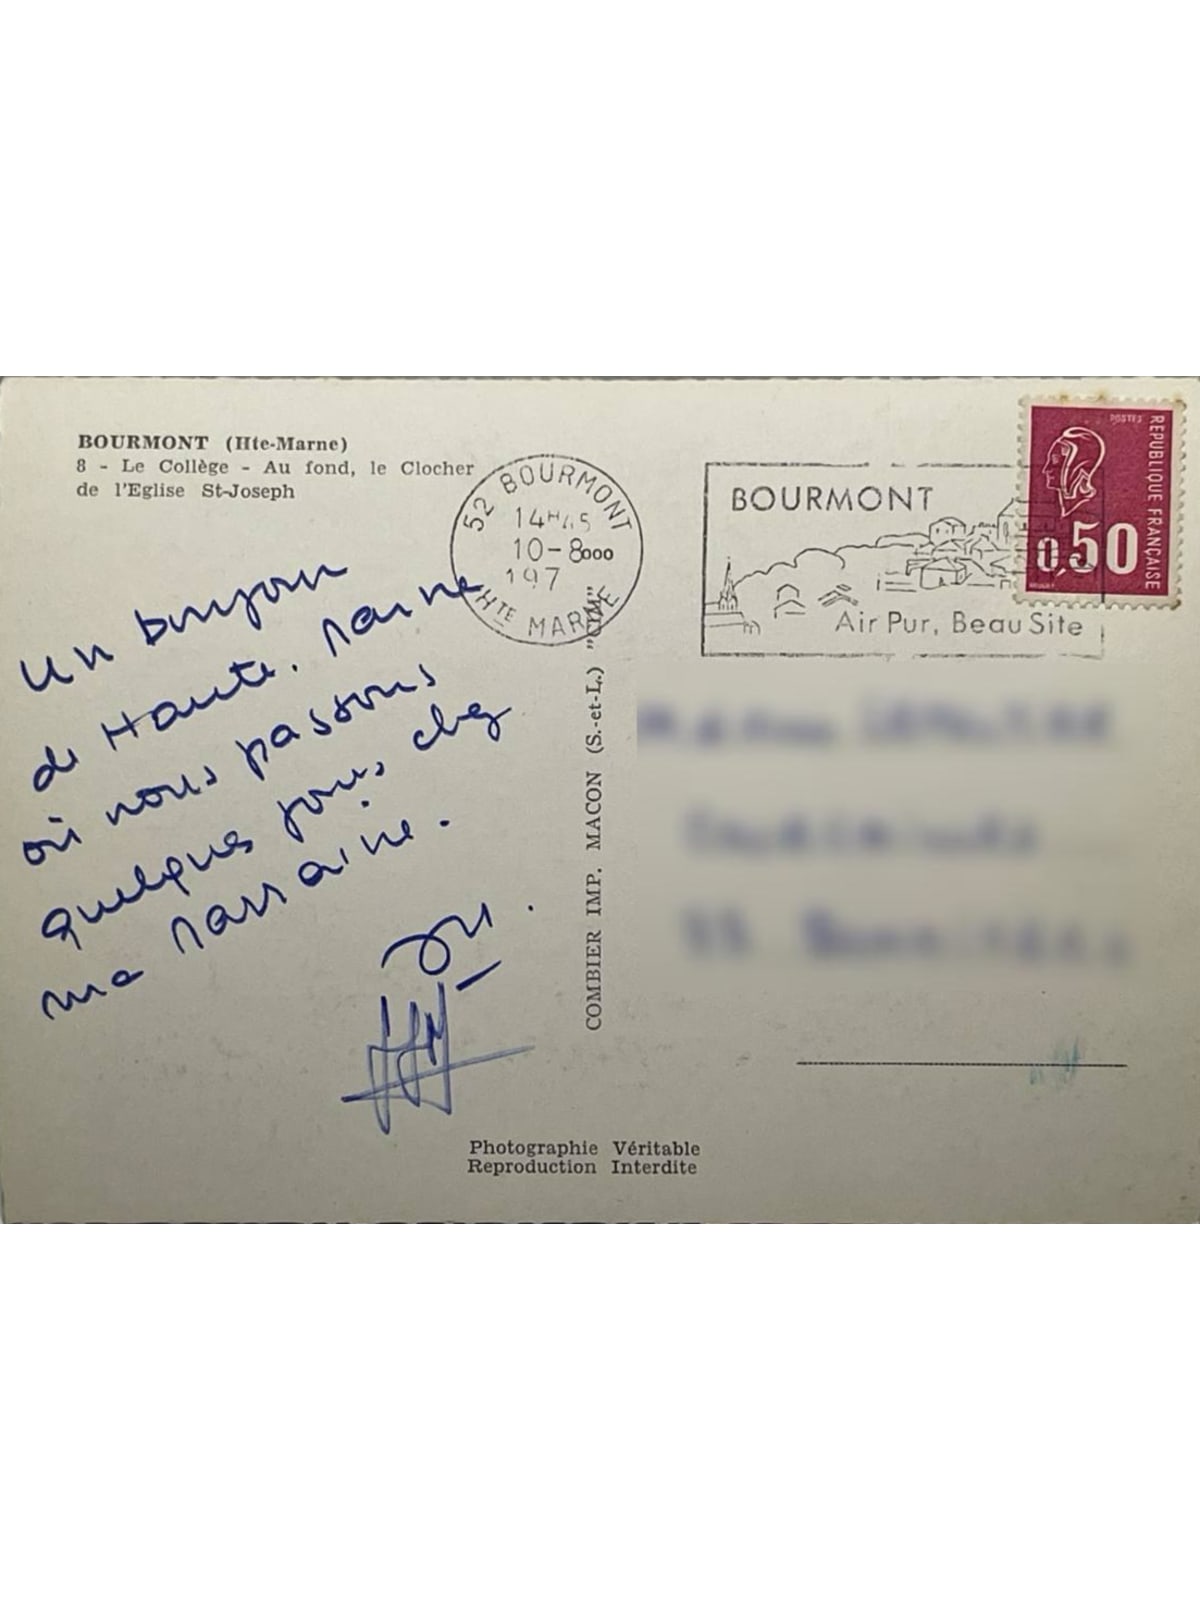 BOURMONT (Hte-Marne)
8 - Le Collège - Au fond, le Clocher
de l'Eglise St-Joseph
52 BOURMONT
14H45
10-8
197
HTE MARNE
BOURMONT
Air Pur, Beau Site
POSTES
REPUBLIQUE FRANÇAISE
0,50
un bonjour
de Haute. Marne
où nous passons
quelques jours chez
ma marraine.
COMBIER IMP. MACON (S.-et-L.) "CIM"
Photographie Véritable
Reproduction Interdite